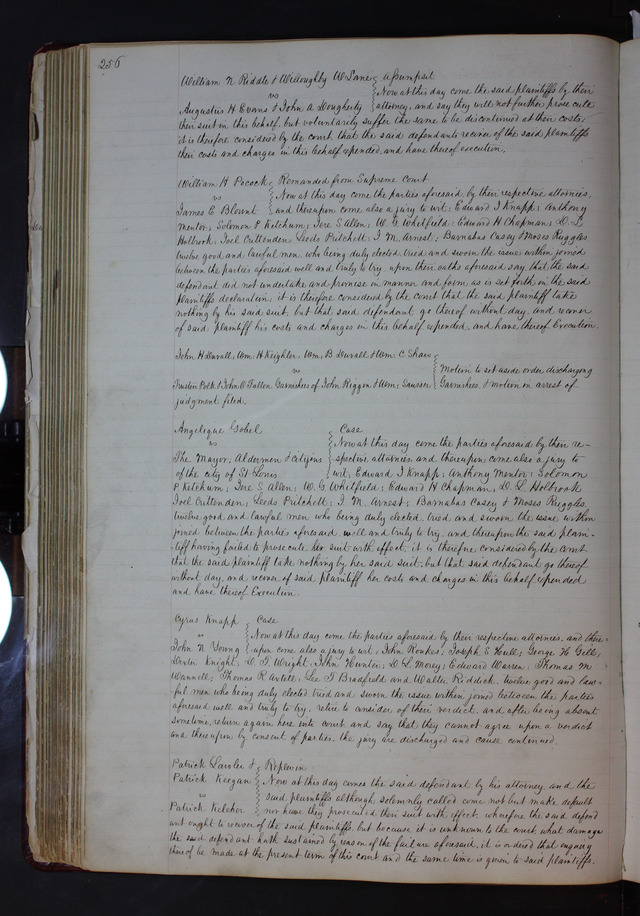 256
William N Riddle & Willoughby W Lane Assumpsit
vs Now at this day come the said plaintiffs by their
Augustus H Evans & John A Dougherty attorney, and say they will not further prosecute
their suit in this behalf, but voluntarily suffer the same to be discontinued at their costs:
it is therefore considered by the court that the said defendants recover of the said plaintiffs
their costs and charges in this behalf expended, and have thereof execution.
William H Pocock Remanded from Supreme Court
vs Now at this day come the parties aforesaid by their respective attornies,
James E Blount and thereupon come also a jury to wit: Edward J Knapp: Anthony
Mentor; Solomon P Ketchum; Tere S Allen; W. G. Whitfield; Edward H Chapman; D. L
Holbrook; Joel Cruttenden; Leeds Pritchell; J. M. Arnest; Barnabas Casey & Moses Ruggles
twelve good and lawful men who being duly elected, tried and sworn the issue within joined
between the parties aforesaid well and truly to try, upon their oaths aforesaid say, that the said
defendant did not undertake and promise in manner and form, as is set forth in the said
plaintiffs declaration; it is therefore considered by the court that the said plaintiff take
nothing by his said suit, but that said defendant go thereof without day, and recover
of said plaintiff his costs and charges in this behalf expended, and have thereof Execution.
John H Duvall, Wm. H Keighler, Wm, B Duvall & Wm. C Shaw
vs Motion to set aside order discharging
Trusten Polk & John O Fallon Garnishees of John Riggin & Wm; Garnishees, & motion in arrest of
judgment filed.
Angelique Gobel Case
vs Now at this day come the parties aforesaid by their re-
The Mayor, Aldermen & Citizens spective attornies, and thereupon come also a jury to
of the city of St Louis wit; Edward J Knapp; Anthony Mentor; Solomon
P Ketchum; Tere S Allen; W. G. Whitfield; Edward H Chapman; D. L Holbrook
Joel Cruttenden; Leeds Pritchell; J. M. Arnest; Barnabas Casey & Moses Ruggles,
twelve good and lawful men who being duly elected, tried and sworn the issue within
joined between the parties aforesaid well and truly to try, and thereupon the said plain-
tiff having failed to prosecute her suit with effect, it is therefore considered by the court
that the said plaintiff take nothing by her said suit; but that said defendant go thereof
without day, and recover of said plaintiff her costs and charges in this behalf expended
and have thereof Execution.
Cyrus Knapp Case
vs Now at this day come the parties aforesaid by their respective attornies, and there-
John N Young upon come also a jury to wit; John Ronkes; Joseph E Hull; George W Gill;
Knight; D. T. Wright; John Hunter; W L Moxey; Edward Warren; Thomas M
Wannell; Thomas R Avtell; Lee T Bradfield and Walter Riddick, twelve good and law-
ful men who being duly elected tried and sworn the issue within joined between the parties
aforesaid well and truly to try, retire to consider of their verdict, and after being absent
sometime, return again here into court and say that they cannot agree upon a verdict
and thereupon by consent of parties the jury are discharged and cause continued.
Patrick Lawler & Replevin
Patrick Keegan Now at this day comes the said defendant by his attorney and the
vs said plaintiffs although solemnly called come not but make default
Patrick Kelcher nor have they prosecuted their suit with effect, wherefore the said defend
ant ought to recover of the said plaintiffs, but because it is unknown to the court what damage
the said defendant hath sustained by reason of the failure aforesaid, it is ordered that enquiry
thereof be made at the present term of this court and the same time is given to said plaintiffs.